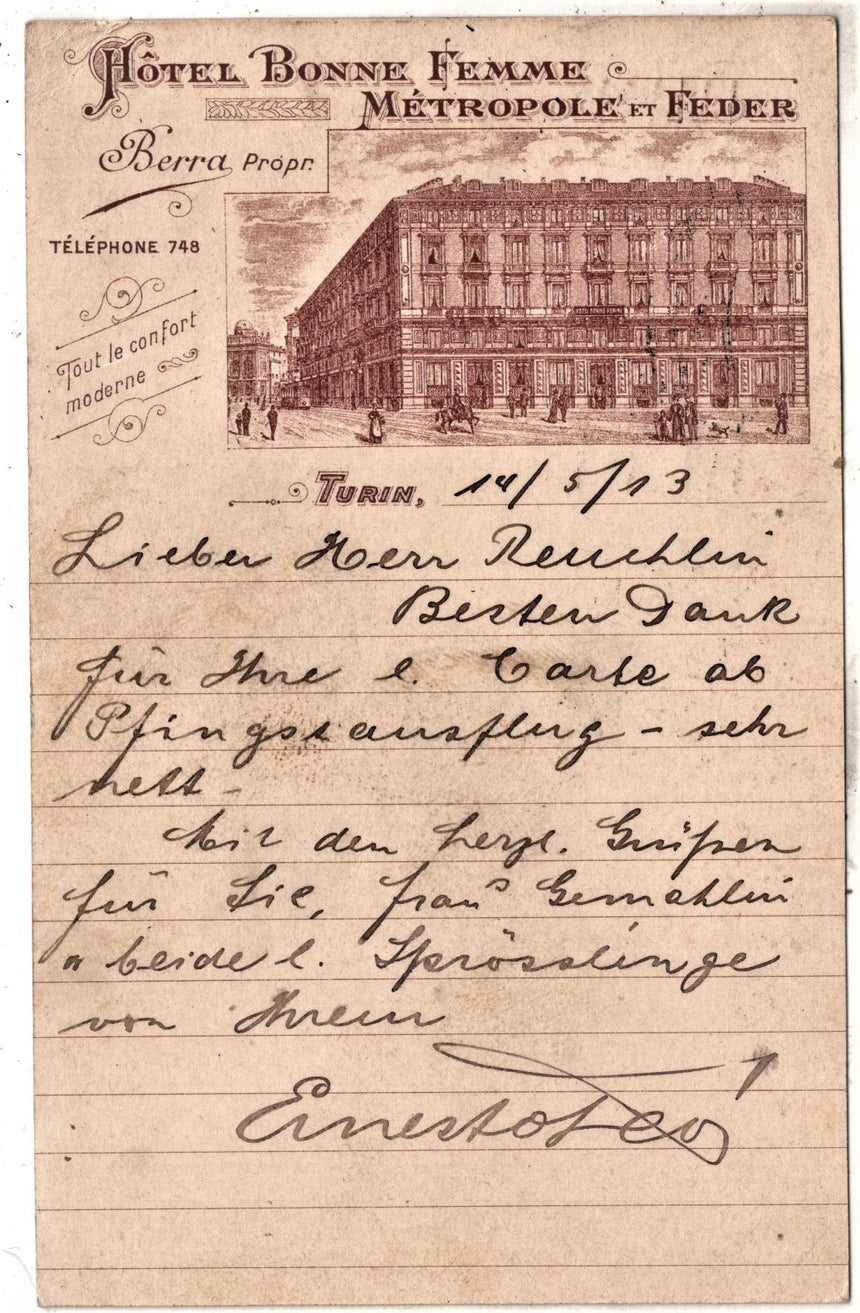 HÔTEL BONNE FEMME
MÉTROPOLE ET FEDER
Berra Propr.
TÉLÉPHONE 748
Tout le confort
moderne
TURIN, 14/5/13
Lieber Herr Reuchlin
Besten Dank
für Ihre l. Carte ab
Pfingstausflug – sehr
nett –
Mit den herzl. Grüßen
für Sie, Frau Gemahlin
u beide l. Sprösslinge
von Ihrem
Ernesto